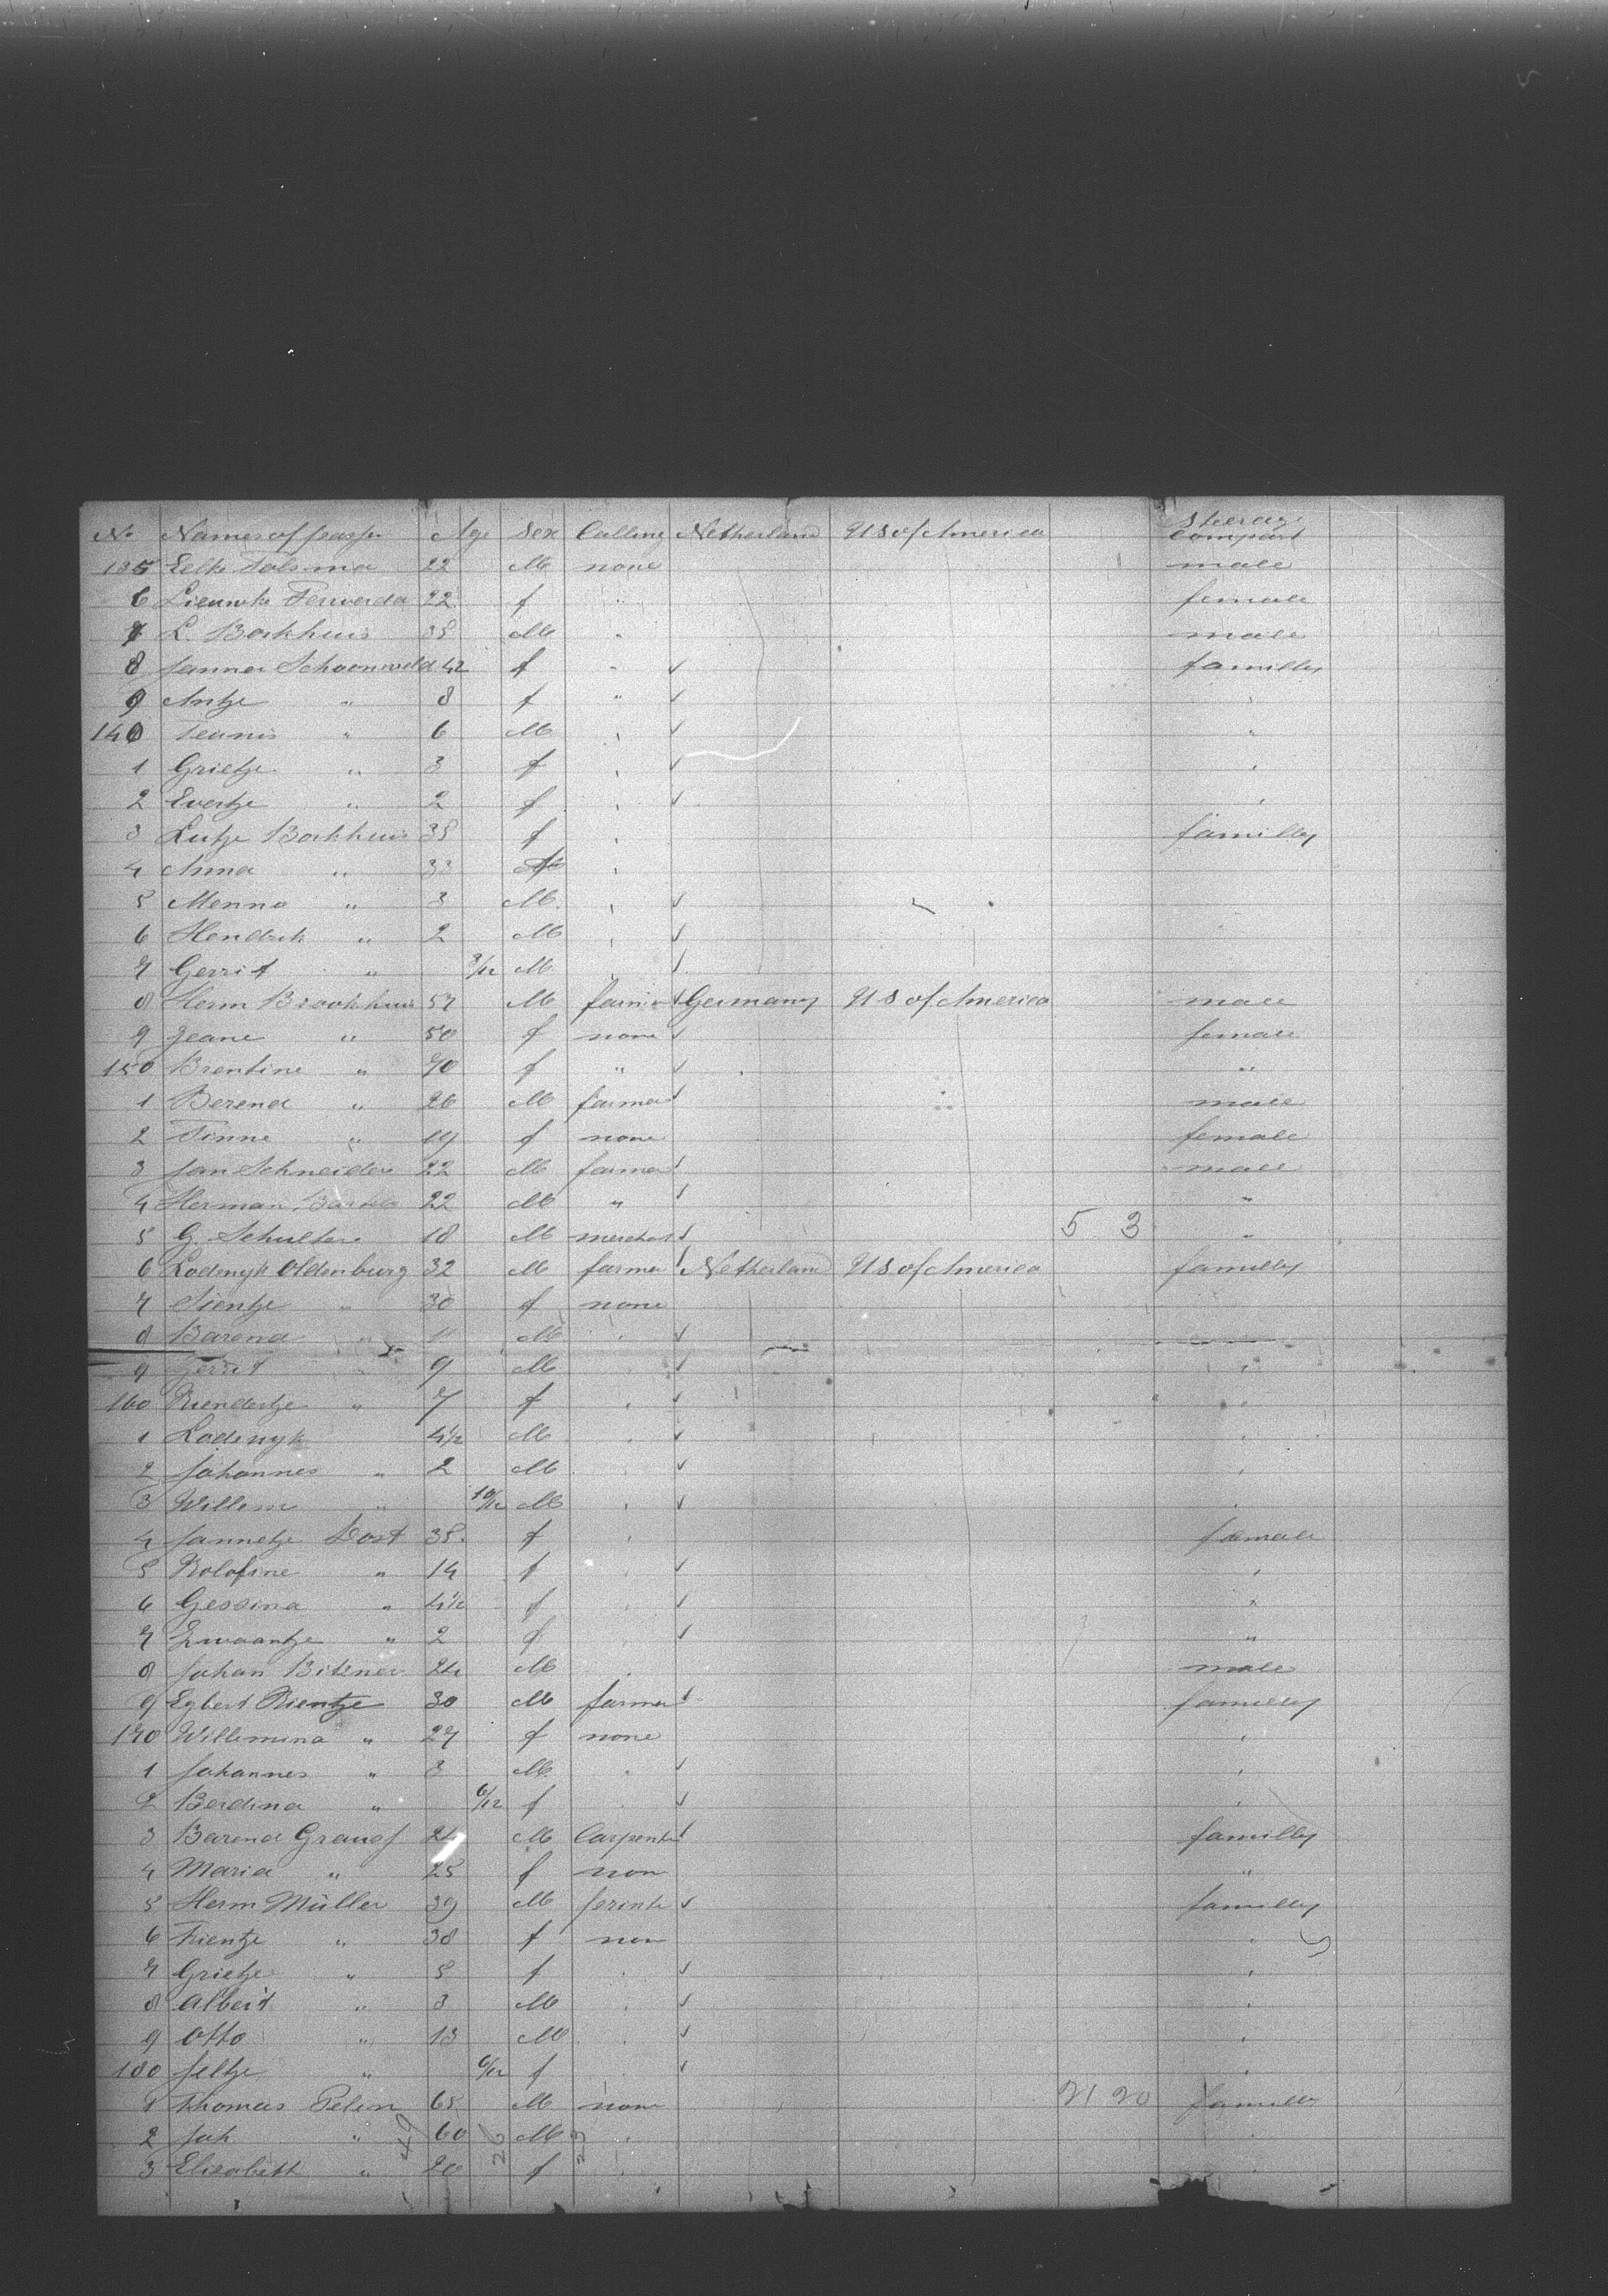 No Names of passr Age Sex Calling Netherland US of America Steerage Compart
135 Eelke Tolsma 22 M none male
6 Lieuwke Ferwerda 22 f " female
7 L. Borkhuis 35 M " male
8 Janna Schoonveld 42 f " familly
9 Antje " 8 f "
140 Teunis " 6 M "
1 Grietje " 3 f "
2 Evertje " 2 f "
3 Lutje Borkhuis 35 f " familly
4 Anna " 33 "
5 Menno " 3 M "
6 Hendrik " 2 M "
7 Gerrit " 3/12 M "
8 Herm Brookhuis 57 M farmer Germany US of America male
9 Jeane " 50 f none female
150 Brentine " 70 f " "
1 Berend " 26 M farmer male
2 Tinne " 19 f none female
3 Jan Schneider 22 M farmer male
4 Herman 22 M " "
5 G. Schulter 18 M merchant 5 3 "
6 Lodewyk Oldenburg 32 M farmer Netherland US of America familly
7 Sientje " 30 f none
8 Barend " 11 M "
9 Gerrit " 9 M "
160 Riendertje " 7 f "
1 Lodewyk 4½ M "
2 Johannes " 2 M "
3 Willem " 10/12 M "
4 Jannetje Dost 35 f " female
5 Rolofine " 14 f "
6 Gessina " 4½ f "
7 Zwaantje " 2 f "
8 Johan Bitzner 24 M " male
9 Egbert Rientje 30 M farmer familly
170 Willemina " 27 f none "
1 Johannes " 3 M " "
2 Berdina " 6/12 f " "
3 Barend Graaf 24 M Carpenter familly
4 Maria " 25 f non "
5 Herm Müller 39 M printer familly
6 Trientje " 38 f non "
7 Grietje " 5 f " "
8 Albert " 3 M " "
9 Otto " 13 M " "
180 Jeltje " 6/12 f " "
1 Thomas Pelen 65 M none 21 20 famille
2 Joh " 60 M "
3 Elisabeth " 20 f "
49 26 23